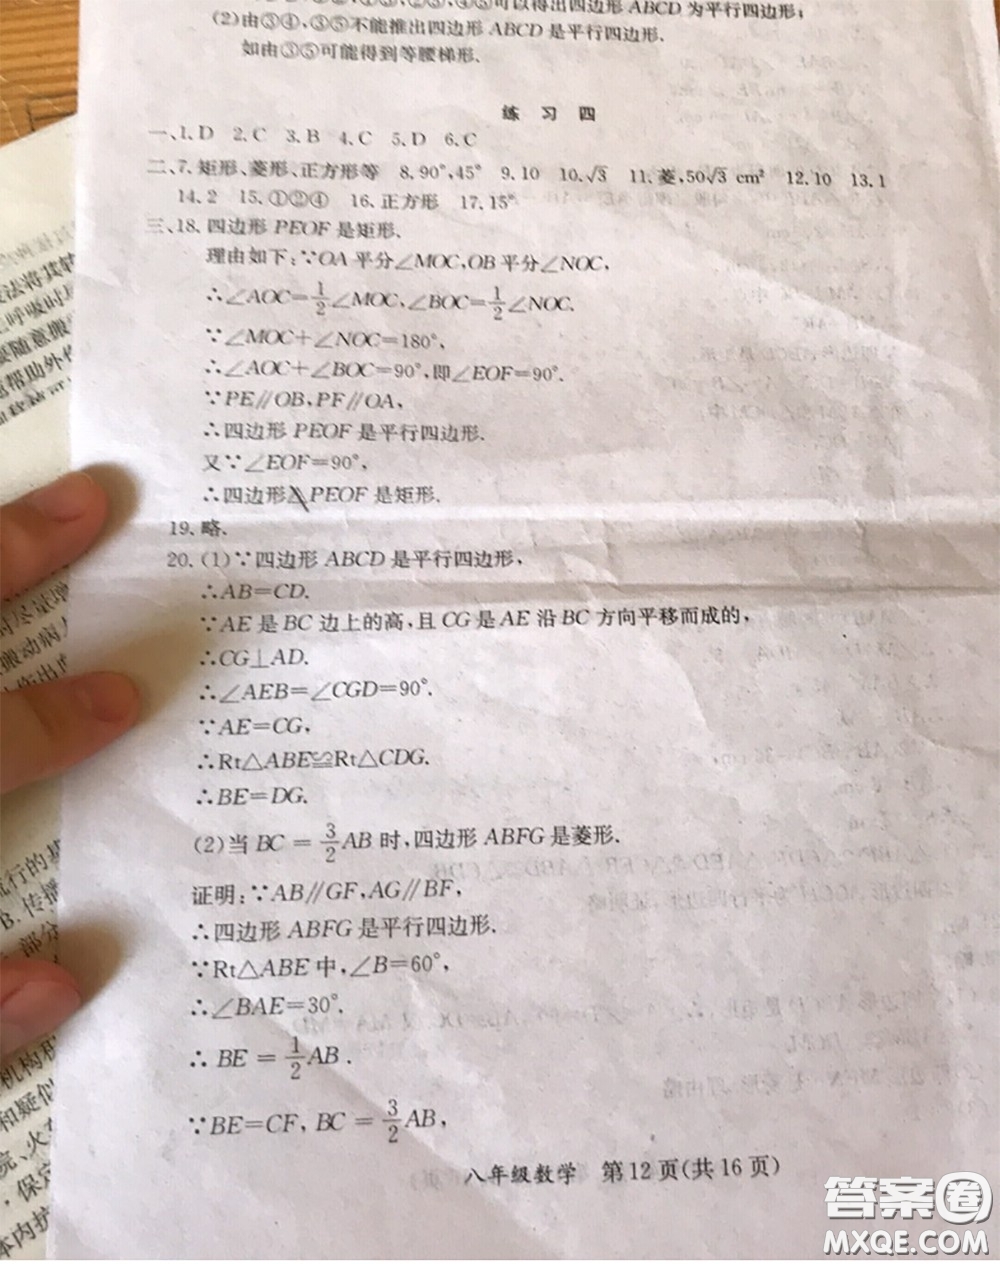 可以得出四边形ABCD为平行四边形;
(2)由③④,③⑤不能推出四边形ABCD是平行四边形.
如由③⑤可能得到等腰梯形.
练 习 四
一、1.D 2.C 3.B 4.C 5.D 6.C
二、7.矩形、菱形、正方形等 8.90°,45° 9.10 10.√3 11.菱,50√3 cm² 12.10 13.1
14.2 15.①②④ 16.正方形 17.15°
三、18.四边形PEOF是矩形.
理由如下:∵OA平分∠MOC,OB平分∠NOC,
∴∠AOC=1/2∠MOC,∠BOC=1/2∠NOC.
∵∠MOC+∠NOC=180°,
∴∠AOC+∠BOC=90°,即∠EOF=90°.
∵PE∥OB,PF∥OA,
∴四边形PEOF是平行四边形.
又∵∠EOF=90°,
∴四边形PEOF是矩形.
19.略.
20.(1)∵四边形ABCD是平行四边形,
∴AB=CD.
∵AE是BC边上的高,且CG是AE沿BC方向平移而成的,
∴CG⊥AD.
∴∠AEB=∠CGD=90°.
∵AE=CG,
∴Rt△ABE≌Rt△CDG.
∴BE=DG.
(2)当BC=3/2AB时,四边形ABFG是菱形.
证明:∵AB∥GF,AG∥BF,
∴四边形ABFG是平行四边形.
∵Rt△ABE中,∠B=60°,
∴∠BAE=30°.
∴BE=1/2AB.
∵BE=CF,BC=3/2AB,
八年级数学 第12页(共16页)
法将其
呼吸时
随意搬
帮助外
时尽量
搬动病
伤出
流行的基
B.传播
部分
机构积
和疑似
院、火
,保定
本内护
答案圈
MXQE.COM